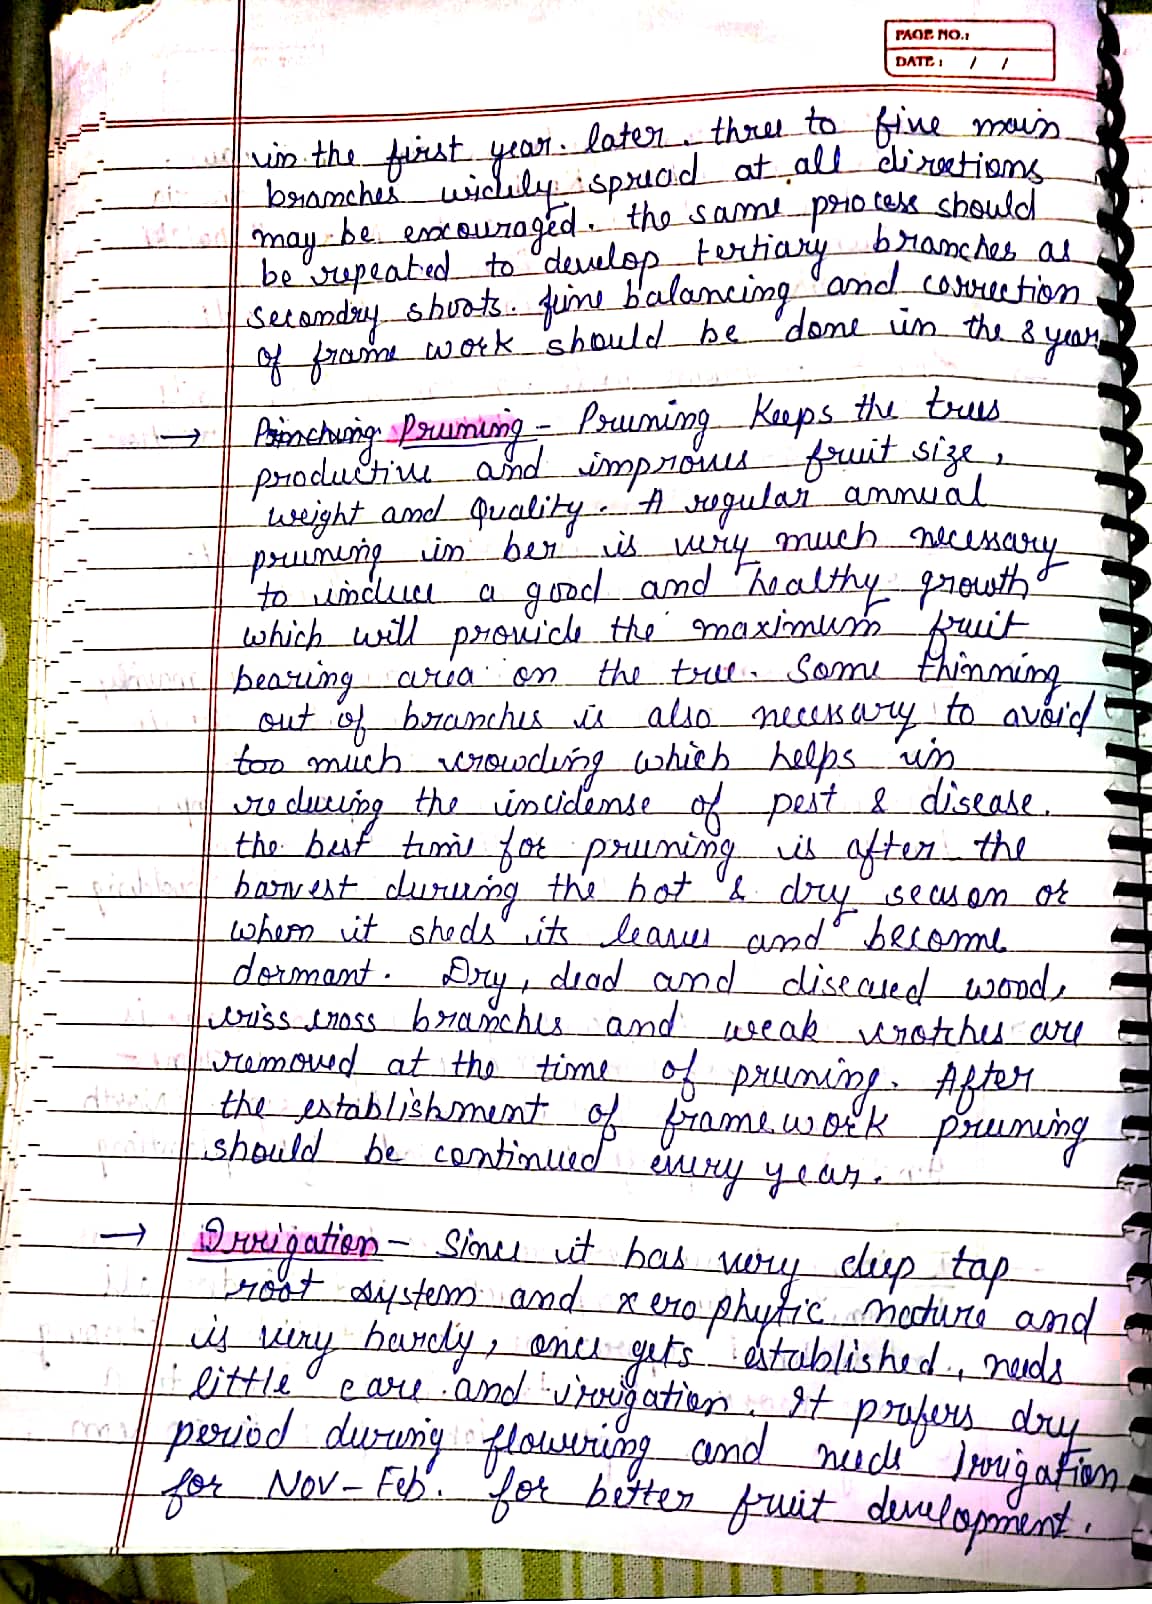 PAGE NO.:
DATE: / /
in the first year. later. three to five main
branches widely spread at all directions
may be encouraged. the same process should
be repeated to develop tertiary branches as
secondry shoots. fine balancing and correction
of frame work should be done in the 3 year
→ Pinching Pruning - Pruning Keeps the trees
productive and improves fruit size,
weight and Quality. A regular annual
pruning in ber is very much necessary
to induce a good and healthy growth
which will provide the maximum fruit
bearing area on the tree. Some thinning
out of branches is also necessary to avoid
too much crowding which helps in
reducing the incidense of pest & disease.
the best time for pruning is after the
harvest during the hot & dry season or
when it sheds its leaves and become
dormant. Dry, dead and diseased wood,
criss cross branches and weak crotches are
removed at the time of pruning. After
the establishment of frame work pruning
should be continued every year.
→ Irrigation - Since it has very deep tap
root system and xerophytic nature and
is very hardy, once gets established, needs
little care and irrigation. It prefers dry
period during flowering and needs Irrigation
for Nov - Feb. for better fruit development.